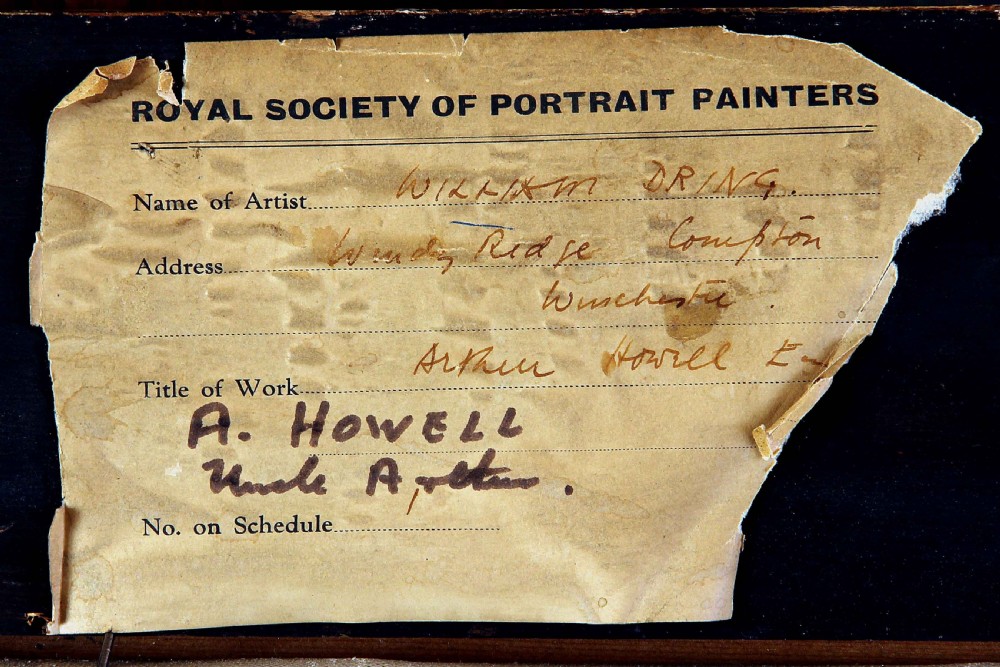 ROYAL SOCIETY OF PORTRAIT PAINTERS
Name of Artist WILLIAM DRING.
Address Windy Ridge Compton
Winchester.
Title of Work Arthur Howell
A. HOWELL
Uncle Arthur.
No. on Schedule